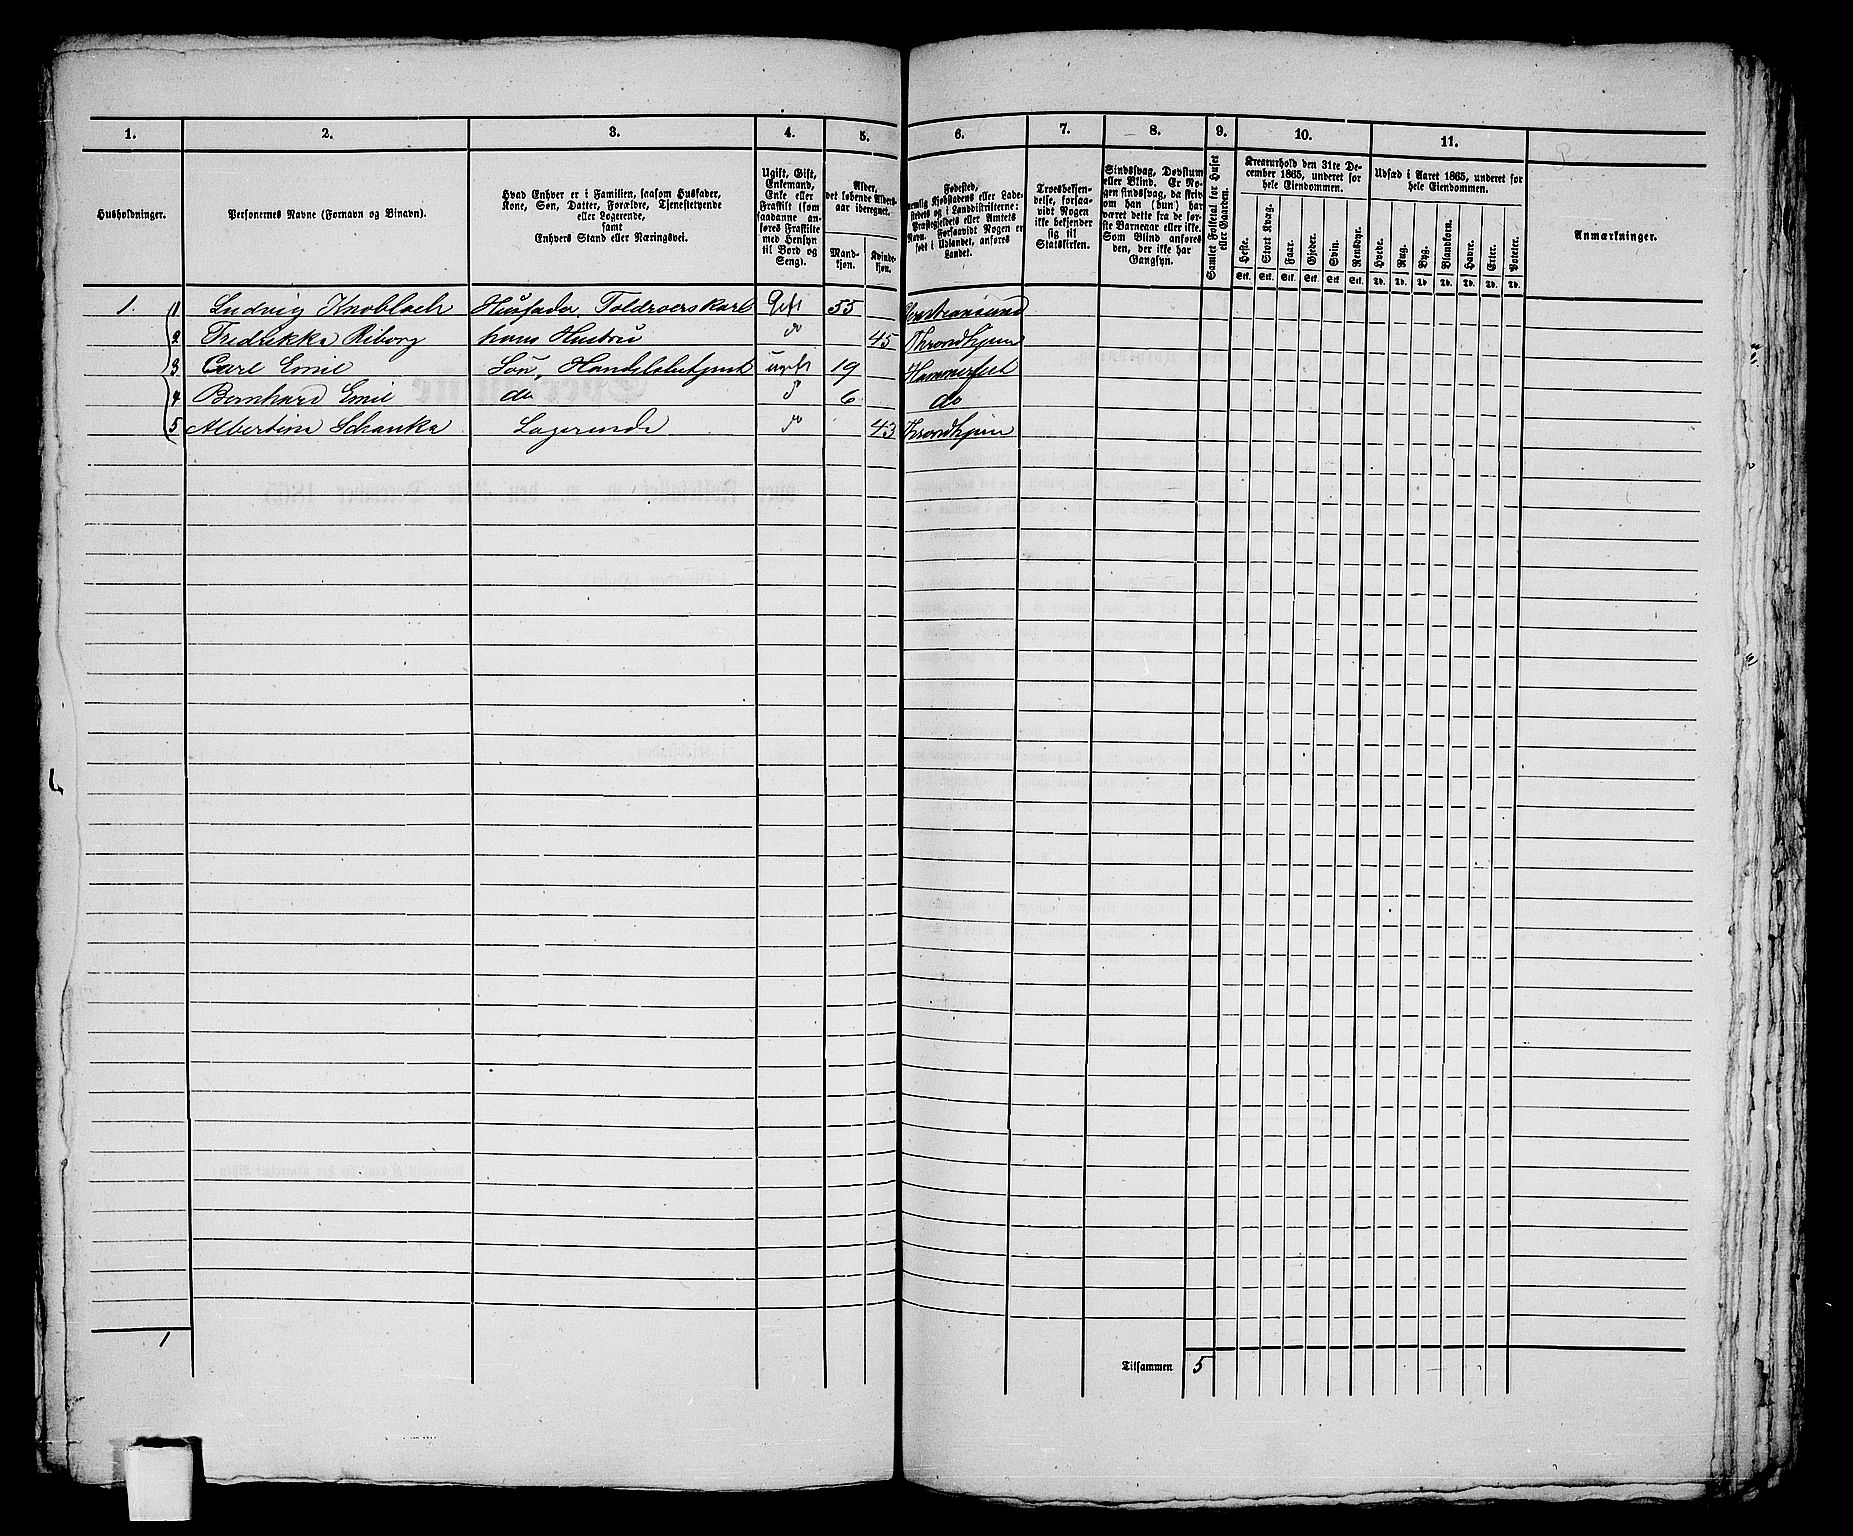 1. 2. 3. 4. 5. 6. 7. 8. 9. 10. 11.
Husholdninger.
Personernes Navne (Fornavn og Binavn).
Hvad Enhver er i Familien, saasom Husfader,
Kone, Søn, Datter, Forældre, Tjenestetyende
eller Logerende,
samt
Enhvers Stand eller Næringsvei.
Ugift, Gift,
Enkemand,
Enke eller
Fraskilt (som
saadanne an-
føres Fraskilte
med Hensyn
til Bord og
Seng).
Alder,
det løbende Alders-
aar iberegnet.
Mand-
kjøn.
Kvinde-
kjøn.
Fødested,
nemlig Kjøbstadens eller Lade-
stedets og i Landdistrikterne:
Præstegjeldets eller Amtets
Navn. Forsaavidt Nogen er
født i Udlandet, anføres
Landet.
Troesbekjen-
delse, forsaa-
vidt Nogen
ikke bekjender
sig til
Statskirken.
Sindssvag, Døvstum
eller Blind. Er No-
gen sindssvag, da skriv
om han (hun) har
været dette fra de før-
ste Barneaar eller ikke.
Som Blind anføres
den, der ikke har
Gangsyn.
Samlet Folketal for Huset
eller Gaarden.
Kreaturhold den 31te De-
cember 1865, underet for
hele Eiendommen.
Heste. Stort Kvæg. Faar. Gjeder. Svin. Rensdyr.
Stk. Stk. Stk. Stk. Stk. Stk.
Udsæd i Aaret 1865, underet for
hele Eiendommen.
Hvede. Rug. Byg. Blandkorn. Havre. Erter. Poteter.
Td. Td. Td. Td. Td. Td. Td.
Anmærkninger.
1. 1 Ludvig Knobloch Husfader, Toldroerskarl Gift 55 Christiansund
2 Fredrikka Riborg hans Hustru do 45 Throndhjem
3 Carl Emil Søn, Handelsbetjent ugift 19 Hammerfest
4 Bernhard Emil do do 6 do
5 Albertina Schanka Logerende do 43 Throndhjem
1
Tilsammen 5